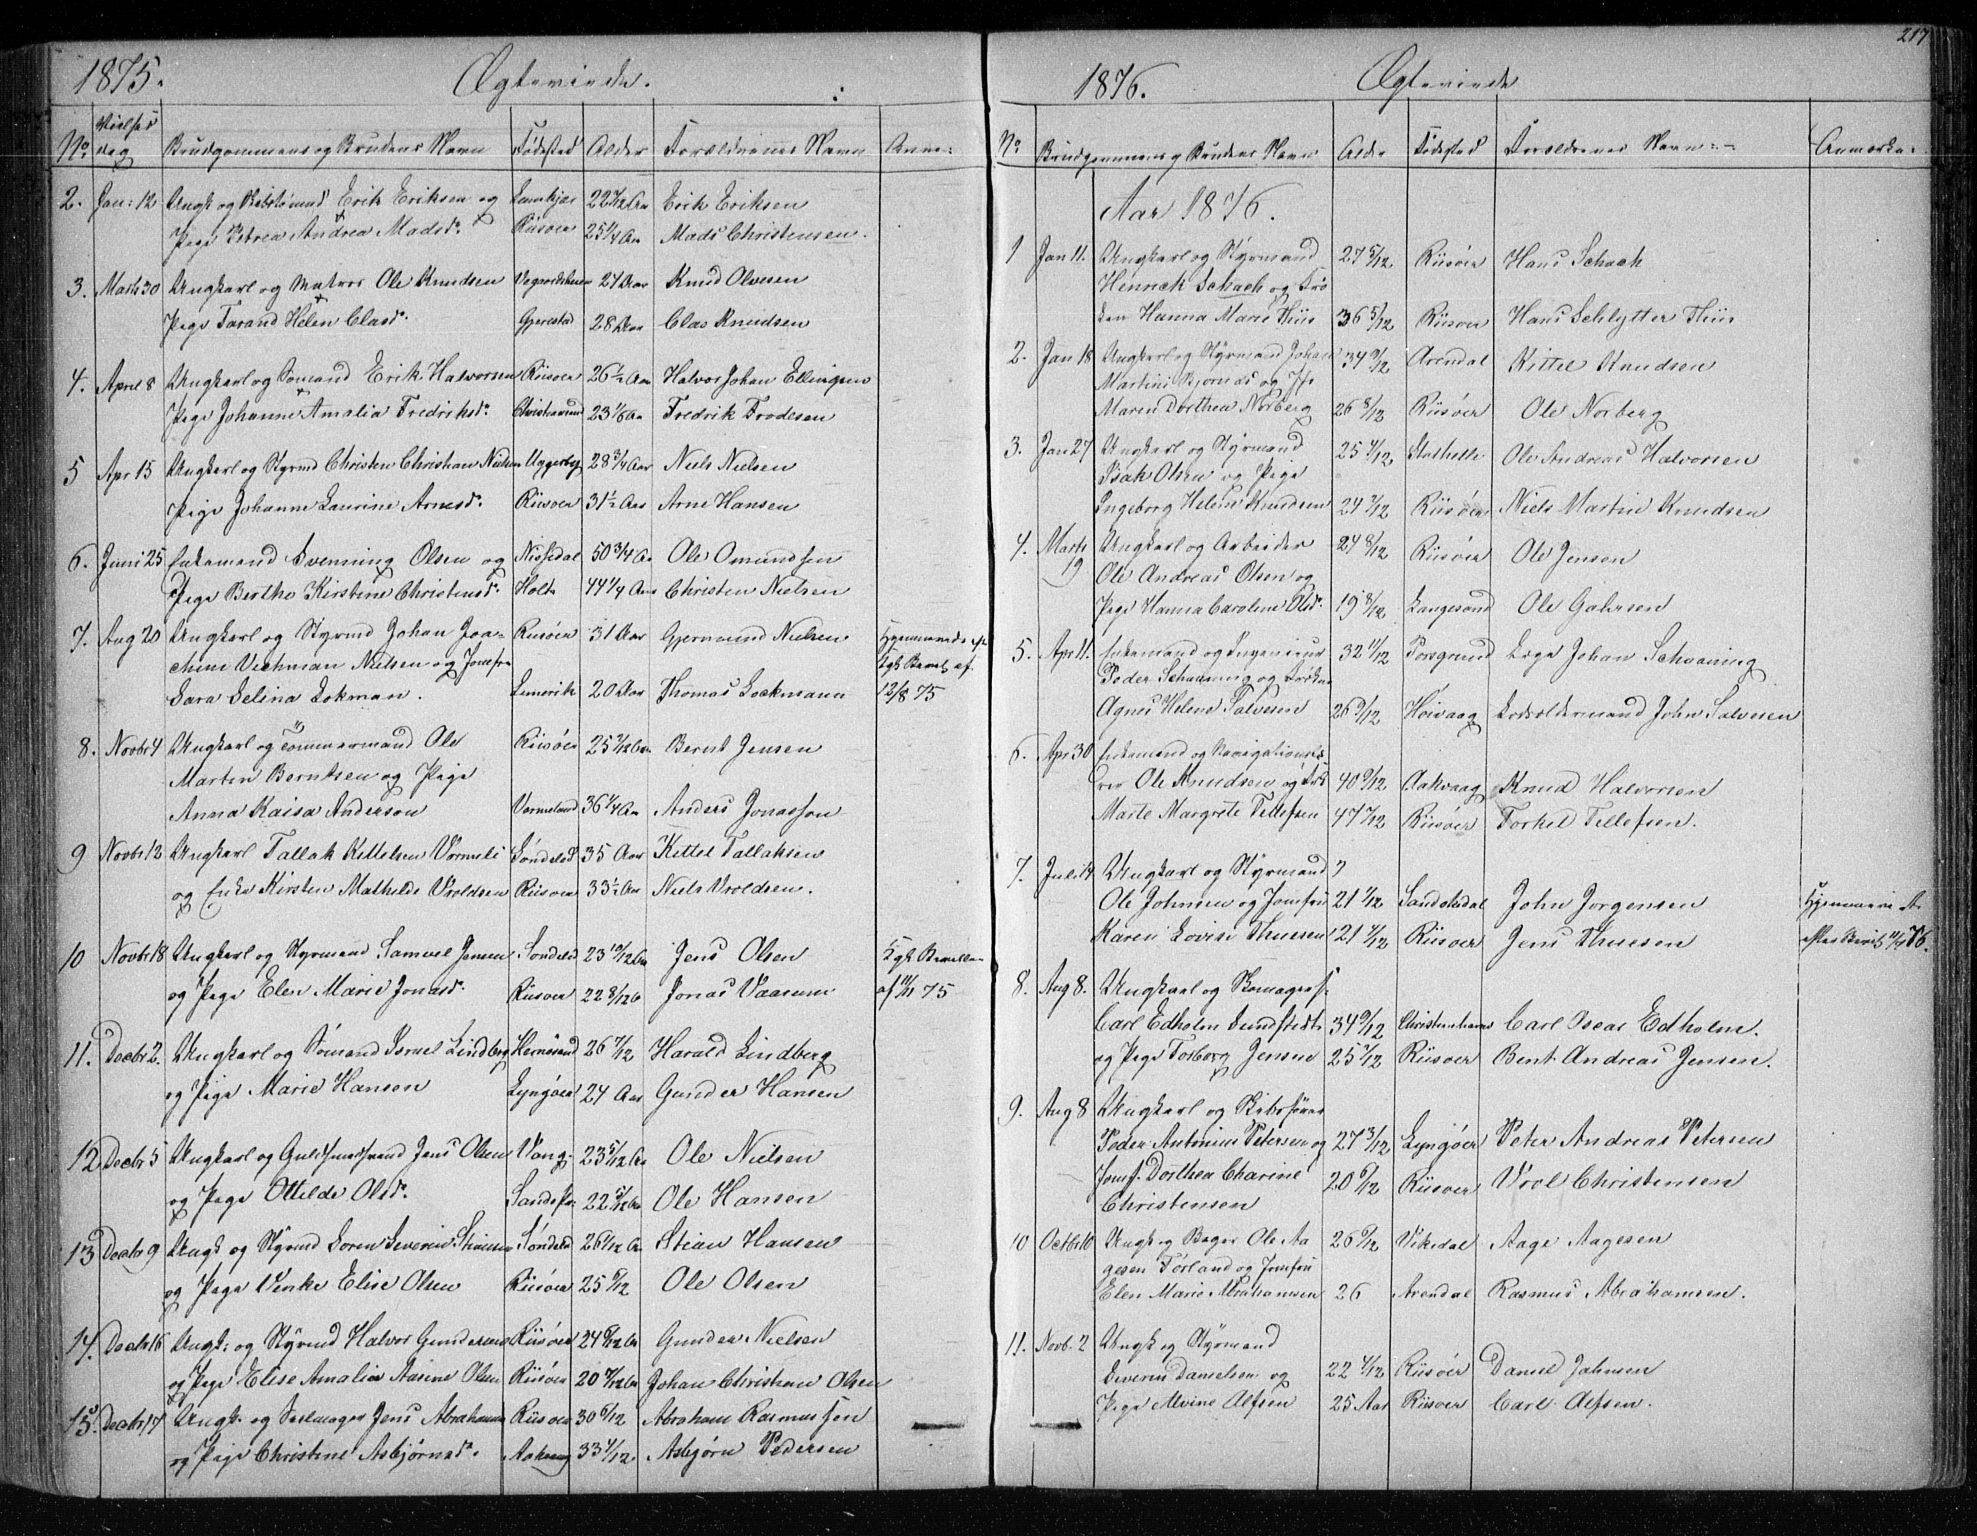 1875.
Ægteviede.
No. Vielses dag Brudgommens og Brudens Navn Fødested Alder Forældrenes Navn Anm:
2. Jan: 12 Ungk og Erik Eriksen og 22 Aar Erik Eriksen
Pige Petrea Andrea Madsdr. Riisøer 25 1/4 Aar Mads Christensen.
3. Marts 30 Ungkarl og Matros Ole Knudsen 27 Aar Knud Olvesen
Pige Tarand Helen Clasdr. Gjerestad 28 Aar Clas Knudsen
4. April 8 Ungkarl og Sømand Erik Halvorsen Riisøer 26 1/2 Aar Halvor Johan Ellingsen
Pige Johanne Amalia Fredriksdr. Christiansund 23 1/6 Aar Fredrik Frodesen
5 Apr 15 Ungkarl og Styrmd Christen Christian Nielsen Uggerby 28 3/4 Aar Niels Nielsen
Pige Johanne Laurine Arnesdr. Riisøer 31 1/2 Aar Arne Hansen
6. Juni 25 Enkemand Svenning Olsen og Nissedal 50 3/4 Aar Ole Omundsen
Pige Berthe Kirstine Christensdr. Holt 44 1/4 Aar Christen Nielsen
7. Aug 20 Ungkarl og Styrmd Johan Joa- Riisøer 31 Aar Gjermund Nielsen Hjemmeviede eft
chim Vechman Nielsen og Jomfru Kgl: Bevil: af
Sara Selina Lokman. Limerik 20 Aar Thomas Lockmann 12/8 75
8. Novbr 4 Ungkarl og Tømmermand Ole Riisøer 25 7/12 Aar Bernt Jensen
Martin Berntsen og Pige
Anna Kaisa Anderson Vermeland 36 1/4 Aar Anders Jonasson
9 Novbr 12 Ungkarl Tallak Kittelsen Vormeli Søndeled 35 Aar Kittel Tallaksen
og Enke Kirsten Mathilde Vroldsen Riisøer 33 1/2 Aar Niels Vroldsen.
10 Novbr 18 Ungkarl og Styrmand Samuel Jensen Søndeled 23 10/12 Aar Jens Olsen Kgl: Bevilln
og Pige Elen Marie Jonasdr. Riisøer 22 8/12 Aar Jonas Vaasum af 11/11 75
11. Decbr 2. Ungkarl og Sømand Israel Lindberg Hernøsand 26 7/12 Harald Lindberg
og Pige Marie Hansen Lyngøer 24 Aar Gunder Hansen
12 Decbr 5 Ungkarl og Guldsmedsvend Jens Olsen Vang 23 5/12 Aar Ole Nielsen
og Pige Ottilde Olsdr. 22 Aar Ole Hansen
13 Decbr 9 Ungk og Styrmd Soren Severin Stiansen Søndeled 26 Aar Stian Hansen
og Pige Venke Elise Olsen Riisøer 25 Ole Olsen
14. Decbr 16 Ungk: og Styrmd Halvor Gundersen Riisøer 24 Aar Gunder Nielsen
og Pige Elise Amalia Aasine Olsen Riisøer 20 Aar Johan Christian Olsen
15. Decbr 17 Ungk. og Seilmager Jens Abrahamsen Riisøer 30 Abraham Rasmussen
og Pige Christine Asbjørnsdr. 33 Asbjørn Pedersen
217
1876.
Ægteviede
No Brudgommens og Brudens Navn Alder Fødested Forældrenes Navn Anmærkn.
Aar 1876.
1 Jan 11. Ungkarl og Styrmand 27 5/12 Riisøer Hans Schach
Henrick Schach og Frø
ken Hanna Marie Thiis 36 5/12 Riisøer Hans Schlytter Thiis
2. Jan 18 Ungkarl og Styrmand Johan 34 Arendal Kittel Knudsen
Martin Bjørnaas og Jfr
Maren Dorthea Norberg 26 8/12 Riisøer Ole Norberg
3. Jan 27 Ungkarl og Styrmand 25 Stathelle Ole Andreas Halvorsen
Isak Olsen og Pige
Ingeborg Helene Knudsen 24 7/12 Riisøer Niels Martin Knudsen
4. Marts 19 Ungkarl og Arbeider 24 8/12 Riisøer Ole Jensen
Ole Andreas Olsen og
Pige Hanna Caroline Olsdr. 19 8/12 Langesund Ole Gahrsen
5. Apr 11. Enkemand og Ingenieur 32 11/12 Porsgrund Læge Johan Schaaning
Peder Schaaning og Frøken
Agnes Helene Salvesen 26 Høivaag Lodsoldermand John Salvesen
6. Apr 30 Enkemand og Navigationslæ-
rer Ole Knudsen og Frk 40 Aakvaag Knud Halvorsen
Marte Margrete Tellefsen 47 7/12 Riisøer Torkel Tellefsen.
7. Juli 14 Ungkarl og Styrmand
Ole Johnsen og Jomfru 21 Sandøkedal John Jørgensen Hjemmevi
Karen Lovise Thuesen 21 Riisøer Jens Thuesen efter Bevil: 76.
8. Aug 8. Ungkarl og
Carl Edholm Sundstedt 34 Christinehavn Carl Oscar Edholm.
og Pige Torborg Jensen 25 Riisøer Bent Andreas Jensen.
9. Aug 8 Ungkarl og Skibsfører
Peder Antonius Petersen og 27 3/12 Lyngøer Peter Andreas Petersen
Jomf. Dorthea Charine 20 Riisøer Vrol Christensen
Christensen
10 Octbr 10 Ungk og Bager Ole Aa 26 Vikedal Aage Aagesen
gesen Førland og Jomfru
Elen Marie Abrahamsen 26 Arendal Rasmus Abrahamsen.
11. Novb. 2 Ungk og Styrmand
Severin Danielsen og 22 Riisøer Daniel Jahnsen
Pige Alvine Alfsen 25 Aar Riisøer Carl Alfsen.